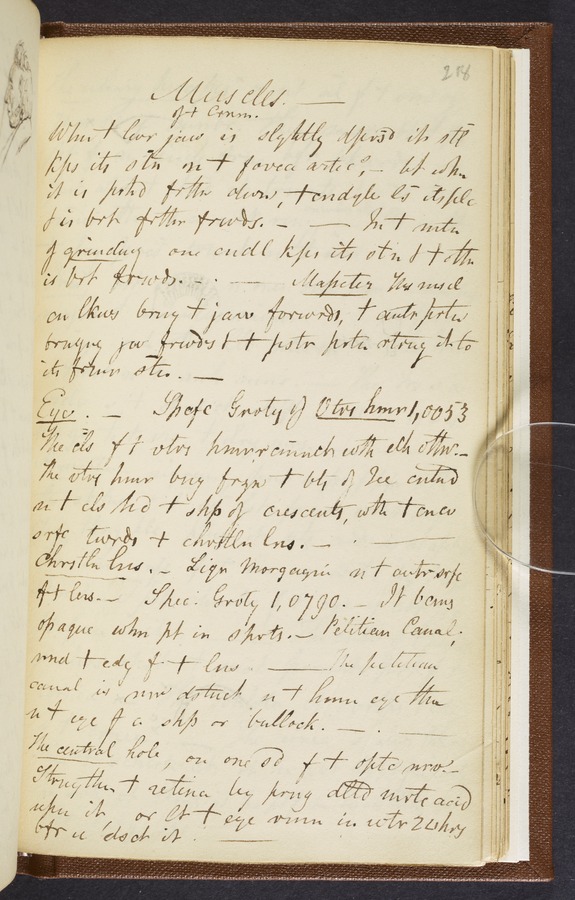 218
Muscles. —
of + Conm.
When + lowr jaw is slightly dprsd it stl
kps its stn in + fovea artic?, — bt whn
it is pshd frthr down, + condyle ls its plc
& is brt frthr frwds. — — In + mtn
of grinding one cndl kps its stn & + othr
is brt frwds. — . — Masseter This muscl
on lkws brng + jaw forwards, + antr prtn
bringng jaw frwds & + pstr prtn rtrng it to
its frmr stn. —
Eye. — Spefc Grvty of Otvs hmr 1,0053
The cls of + vtrs hmr cmnct with ech othr. —
The vtrs hmr bng frzn + bts of Ice cntnd
in t cls hd + shp of crescents, with + cncv
srfc twrds + chrstln lns. — . —
Chrstln lns. — Liqr Morgagni in + antr srfc
of + lens. — Spec: Grvty 1,0790. — It bcms
opaque whn pt in sprts. — Petitian Canal;
rnd + edg of + lns . — The petitian
canal is mr dstnct in + hmn eye thn
in + eye of a shp or bullock. — . —
The central hole, on one sd of + optc nrv. —
Strngthn + retina by prng dltd nitrc acid
upn it or lt + eye rmn in wtr 24 hrs
bfr u dsct it . —